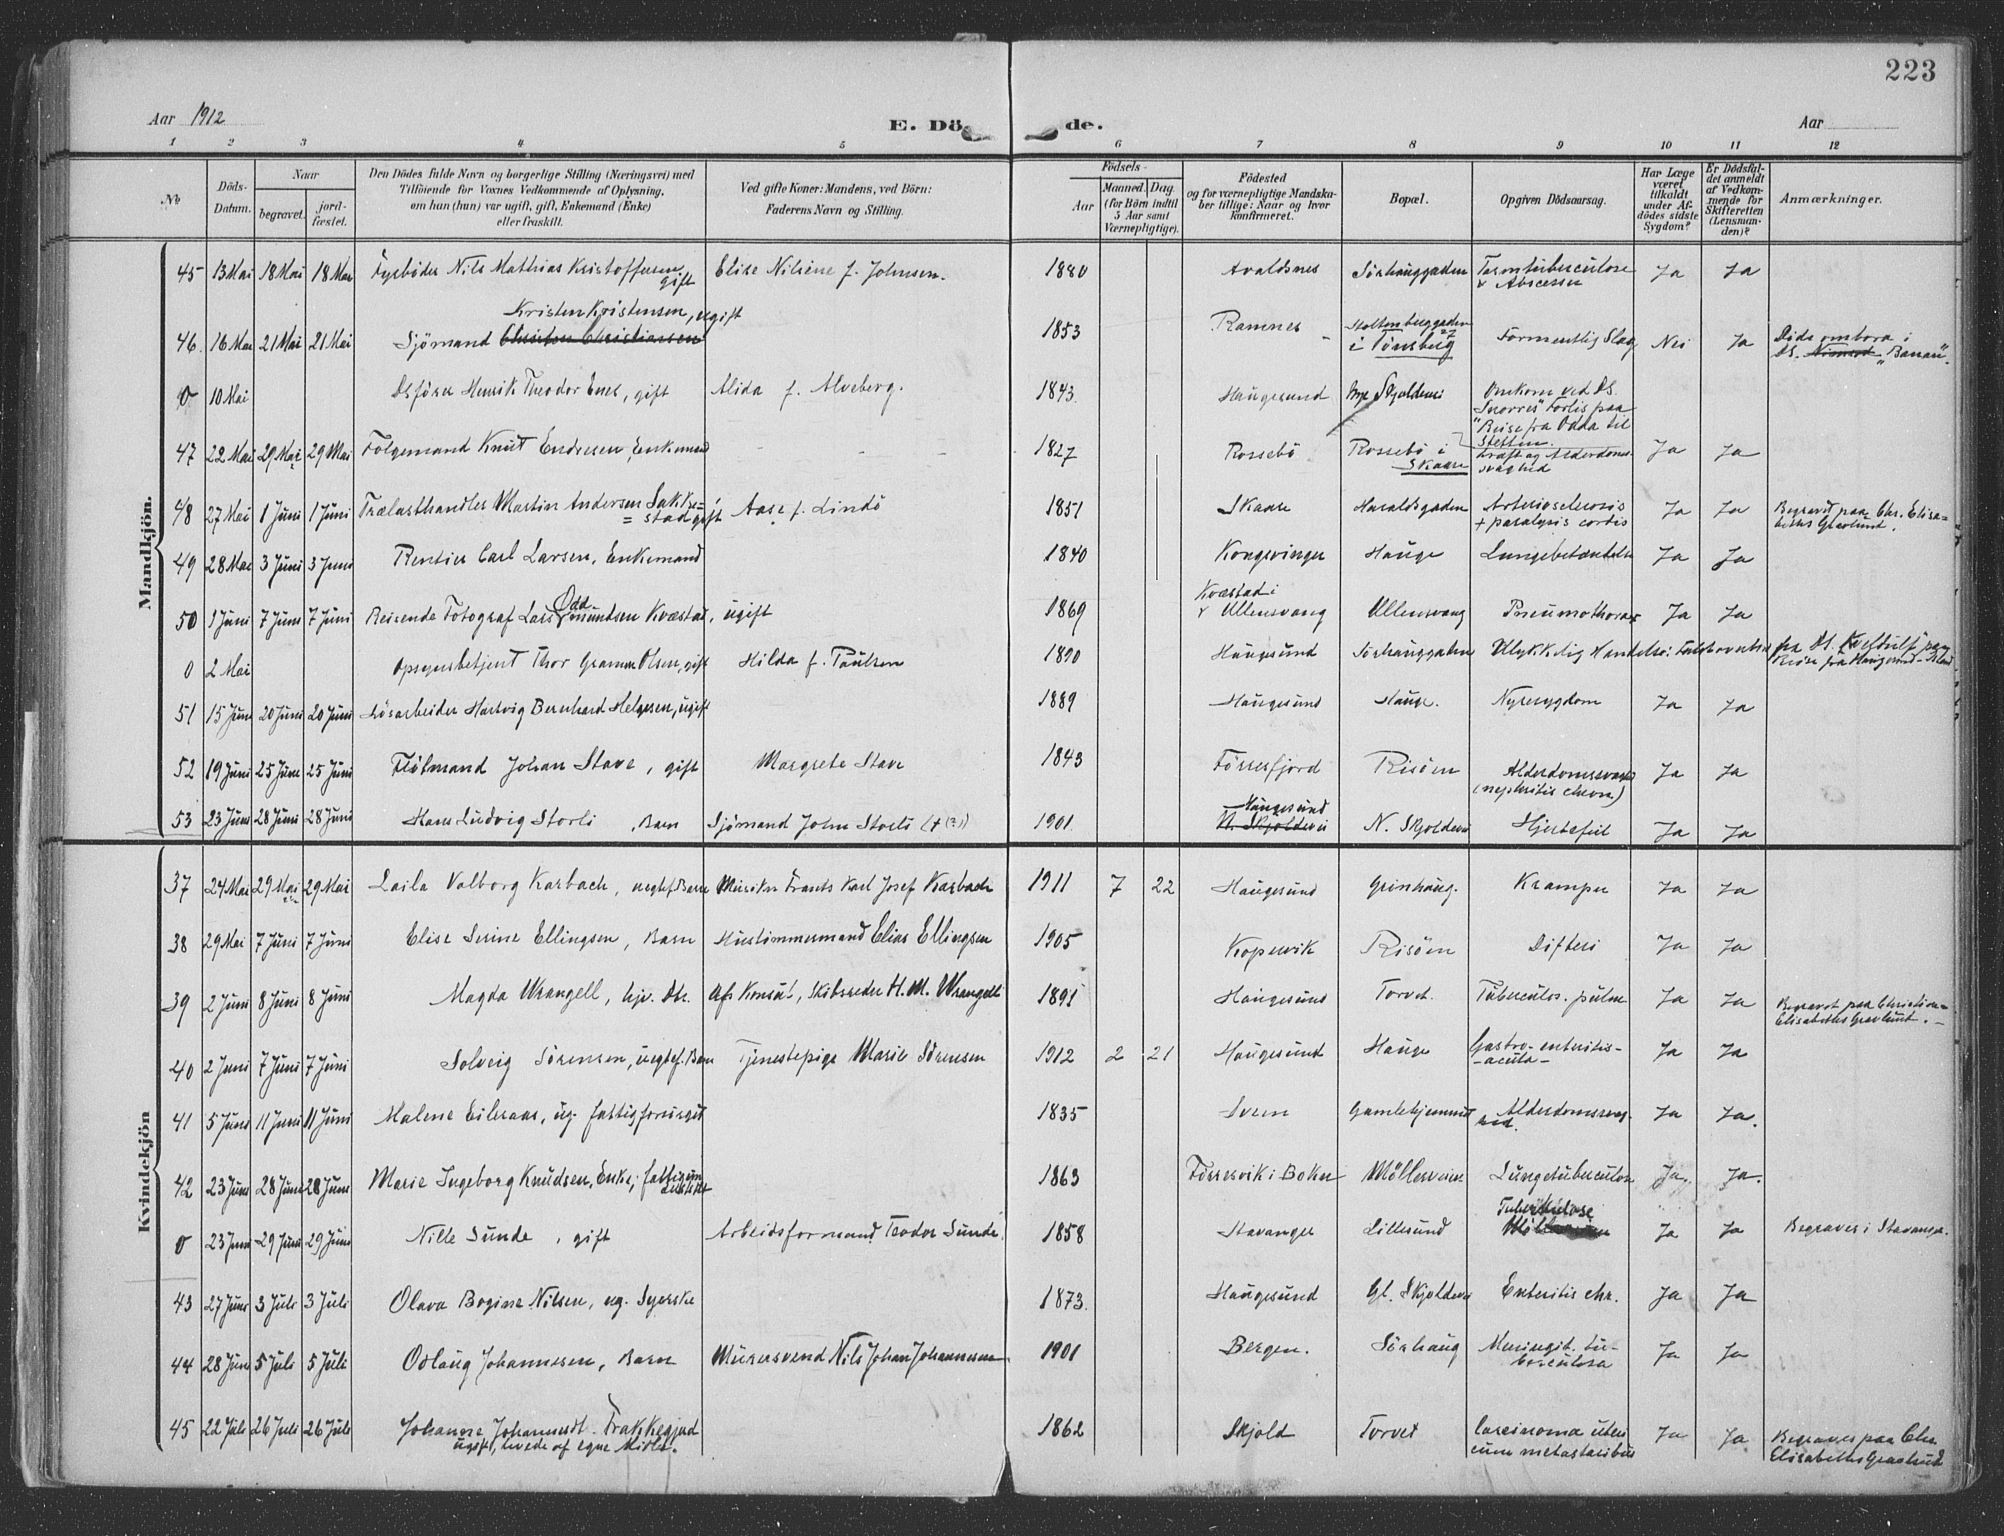 223
Aar 1912
E. Dö de.
Aar
1 2 3 4 5 6 7 8 9 10 11 12
No
Döds-Datum.
Naar
begravet.
jordfæstet.
Den Dödes fulde Navn og borgerlige Stilling (Næringsvei) med
Tilföiende for Voxnes Vedkommende af Oplysning,
om han (hun) var ugift, gift, Enkemand (Enke)
eller fraskilt.
Ved gifte Koner: Mandens, ved Börn:
Faderens Navn og Stilling.
Födsels-
Aar
Maaned. Dag.
(for Börn indtil
5 Aar samt
Værnepligtige).
Födested
og for værnepligtige Mandskaber tillige: Naar og hvor
konfirmeret.
Bopæl.
Opgiven Dödsaarsag.
Har Læge
været
tilkaldt
under Afdödes sidste
Sygdom?
Er Dödsfaldet anmeldt
af Vedkommende for
Skifteretten
(Lensmanden)?
Anmærkninger.
Mandkjön.
45 13 Mai 18 Mai 18 Mai Fyrböder Nils Mathias Kristoffersen, gift Elise Nilsine f. Johnsen. 1880 Avaldsnes Sörhauggaden Tarmtuberculose & Abscesser Ja Ja
46. 16 Mai 21 Mai 21 Mai Sjömand Christen Christiansen Kristen Kristensen, ugift 1853 Ramnes Stoltenberggaden 27 i Tönsberg Formentlig Slag Nei Ja Döde ombord i DS. Nimrod "Banan".
0 10 Mai Henrik Theodor Enes, gift Alida f. Alveberg. 1843. Haugesund Nye Skjoldevei Omkom ved DS. "Snorres" Forlis paa Reise fra Odda til Stettin.
47 22 Mai 29 Mai 29 Mai Fölgemand Knut Endresen, Enkemand - - - 1827 Rossebö Rossebö i Skaare Kraft og Alderdomssvaghed Ja Ja
48 27 Mai 1 Juni 1 Juni Trælasthandler Martin Andersen Sakkestad gift Aase f. Lindö 1851 Skaare Haraldsgaden Arteriosclerosis + paralysis cordis Ja Ja Begravet paa Chr. Elisabeths Gravlund.
49 28 Mai 3 Juni 3 Juni Rentier Carl Larsen, Enkemand 1840 Kongsvinger Hauge Lungebetændelse Ja Ja
50 1 Juni 7 Juni 7 Juni Reisende Fotograf Lars Oddmundsen Kvæstad, ugift 1869 Kvæstad i Ullensvang Ullensvang Pneumothorax Ja Ja
0 2 Mai Opsynsbetjent Thor Gramm Olsen, gift Hilda f. Paulsen 1890 Haugesund Sörhauggaden Ulykkelig Hændelse: Faldt overbord fra DS. Kveldulf paa Reise fra Haugesund -
51 15 Juni 20 Juni 20 Juni Lösarbeider Hartvig Bernhard Helgesen, ugift 1889 Haugesund Hauge. Nyresygdom Ja Ja
52 19 Juni 25 Juni 25 Juni Johan Stave, gift Margrete Stave 1843 Förresfjord Risöen Alderdomssvaghed (nephritis chron.) Ja Ja
53 23 Juni 28 Juni 28 Juni Hans Ludvig Storli, Barn Sjömand John Storli 1901 N. Skjoldevei Haugesund N. Skjoldevei Hjertefeil Ja Ja
Kvindekjön
37 24 Mai 29 Mai 29 Mai Laila Valborg Karbach, uegtef. Barn Musiker Frants Karl Josef Karbach 1911 7 22 Haugesund Grinhaug. Kramper Ja Ja
38 29 Mai 7 Juni 7 Juni Elise Serine Ellingsen, Barn Hustimmermand Elias Ellingsen 1905 Kopervik Risöen Difteri Ja Ja
39 2 Juni 8 Juni 8 Juni Magda Wrangell, hjv. Dtr. Af Konsul, Skibsreder H. M. Wrangell 1891 Haugesund Torvet. Tuberculos. pulm Ja Ja Begravet paa Christian-Elisabeths Gravlund.
40 2 Juni 7 Juni 7 Juni Solveig Sörensen, uegtef. Barn Tjenestepige Marie Sörensen 1912 2 21 Haugesund Hauge Gastro-enteritis-acuta- Ja Ja
41 5 Juni 11 Juni 11 Juni Malene Eileraas, ug. fattigforsörget 1835 Sveen Gamlehjemmet Alderdomssvaghed. Ja Ja.
42 23 Juni 28 Juni 28 Juni Marie Ingeborg Knudsen, Enke, fattigunderstöttet 1863 Förresvik i Boken Möllerveien Lungetuberculose Ja. Ja.
0 23 Juni 29 Juni 29 Juni Nille Sunde, gift Arbeidsformand Teodor Sunde. 1858 Stavanger Lillesund Tuberkulose Ja Ja Begraves i Stavanger.
43 27 Juni 3 Juli 3 Juli Olava Bogine Nilsen, ug. Syerske 1873. Haugesund Gl. Skjoldevei Enteritis chr. Ja Ja
44 28 Juni 5 Juli 5 Juli Oslaug Johannesen, Barn Murersvend Nils Johan Johannesen 1901 Bergen. Sörhaug Meningit. tuberculosa Ja Ja
45 22 Juli 26 Juli 26 Juli Johanne Johannesdt. Frakkegjerd ugift, levede af egne Midler. 1862 Skjold Torvet Carcinoma uteri cum metastasibus Ja Ja Begraves paa Chr. Elisabeths Gravlund